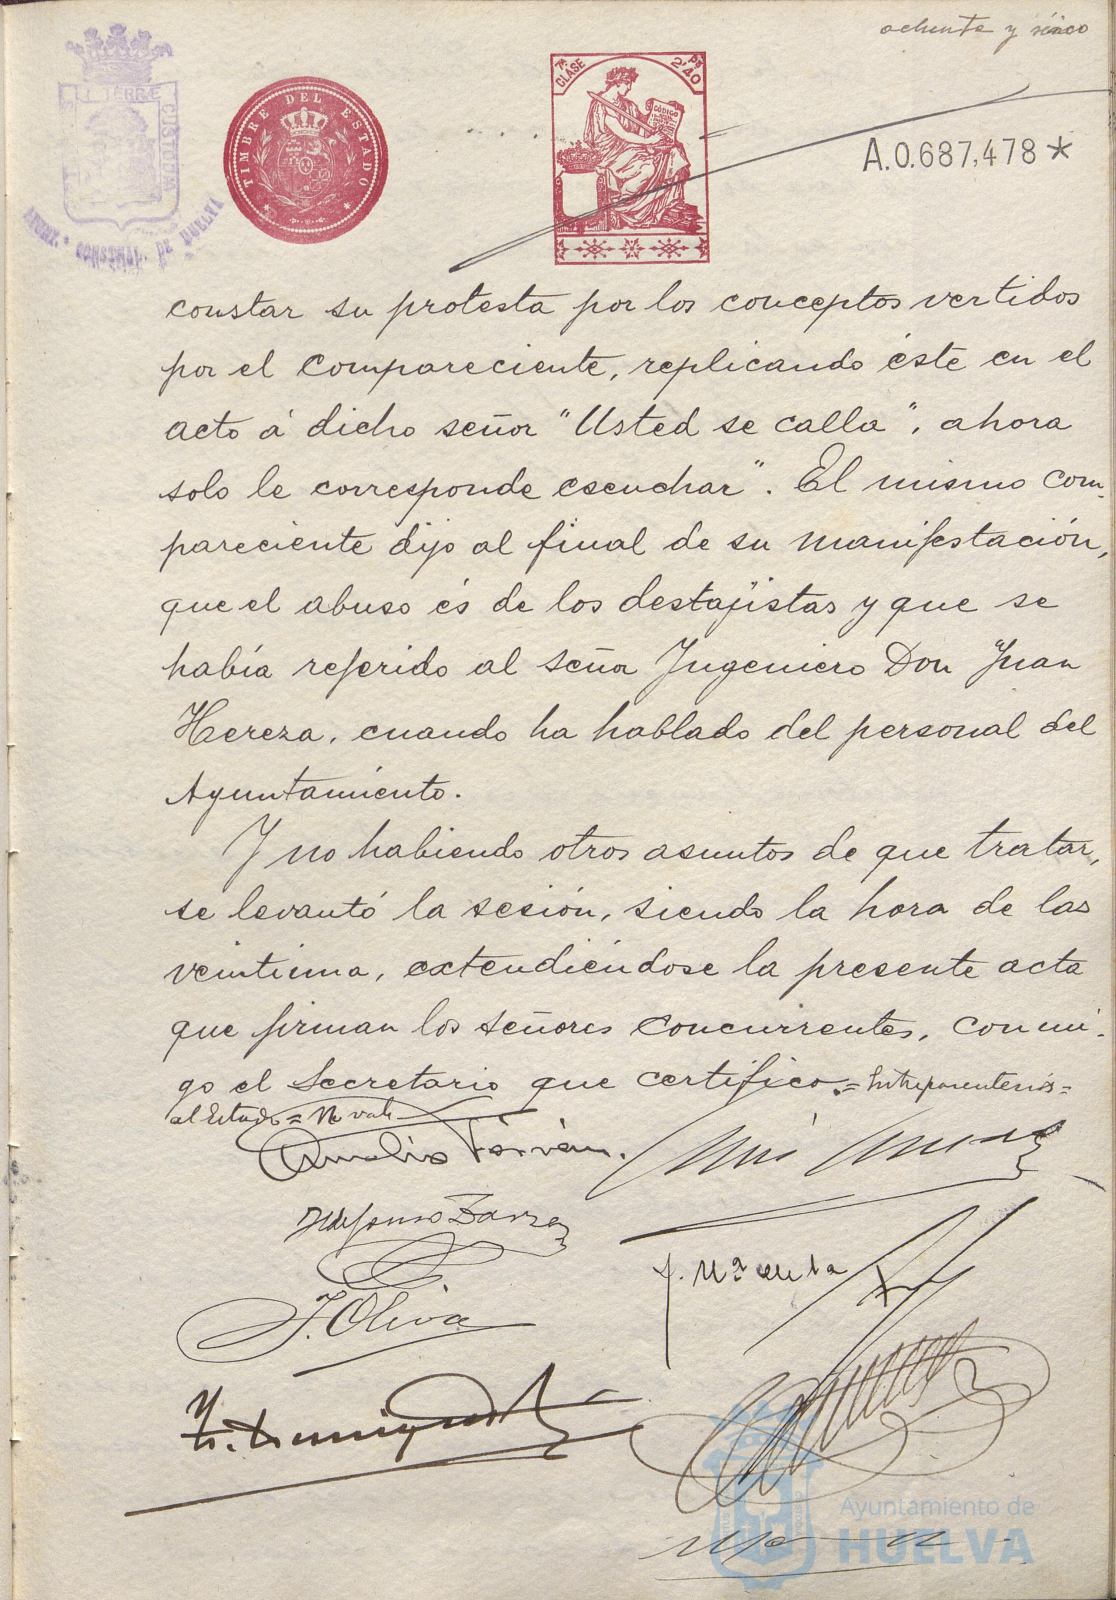 ochenta y cinco
TIMBRE DEL ESTADO
7ª CLASE
2'40 pts
CÓDIGO
A.0.687,478 *
constar su protesta por los conceptos vertidos
por el compareciente, replicando éste en el
acto á dicho señor "Usted se calla", ahora
solo le corresponde escuchar". El mismo com-
pareciente dijo al final de su manifestación,
que el abuso és de los destajistas y que se
había referido al señor Yngeniero Don Juan
Hereza, cuando ha hablado del personal del
Ayuntamiento.
Y no habiendo otros asuntos de que tratar,
se levantó la sesión, siendo la hora de las
veintiuna, extendiéndose la presente acta
que firman los señores concurrentes, conmi-
go el Secretario que certifico.=Entreparentesis=
al Estado = No vale
J. Oliva
Ayuntamiento de
HUELVA